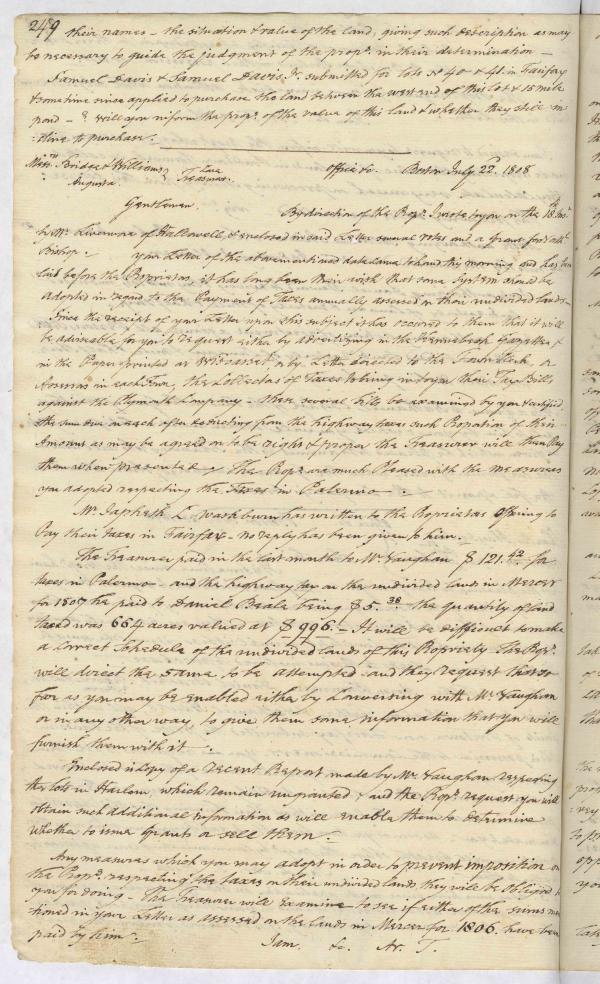 249 their names – the situation & value of the land, giving such description as may
be necessary to guide the judgment of the propr. in their determination –
Samuel Davis & Samuel Davis Jr. submitted for lots No 40 & 41 in Fairfax
& sometime since applied to purchase the land between the west end of this lot & 15 mile
pond – will you inform the propr. of the value of this land & whether they still in
=cline to purchase.
Messrs. Bridge & Williams
Augusta
Office &c. Boston July 22d. 1808
Gentlemen
By direction of the Propr. I wrote to you on the 18th. Inst.
by Mr. Livermore of Hallowell, & enclosed in said Letter several votes and a Grant for
Bishop. your Letter of the abovementioned date came to hand this morning and has been
laid before the Proprietors, it has long been their wish that some system could be
adopted in regard to the Payment of Taxes annually assessed on their undivided lands –
Since the receipt of your Letter upon this subject it has occurred to them that it will
be adviseable for you to request either by advertizing in the Kennebeck Gazette &
in the Paper printed at Wiscasset or by Letter directed to the Town Clerk or
Assessors in each Town, the Collectors of Taxes to bring in to you their Tax Bills,
against the Plymouth Company – these several bills be examined by you & certified
the sum due on each after deducting from the highway taxes such Proportion of their
Amounts as may be agreed on to be right & proper the Treasurer will then Pay
them when presented. The Propr. are much Pleased with the measures
you adopted respecting the Taxes in Palermo.
Mr. Japheth C. Washburn has written to the Proprietors offering to
Pay their taxes in Fairfax – no reply has been given to him.
The Treasurer paid in the last month to Mr. Vaughan $121.42 for
taxes in Palermo – and the highway tax on the undivided lands in Mercer
for 1807 he paid to Daniel Beale being $5.38 the quantity of land
taxed was 664 acres valued at $996. – It will be difficult to make
a correct Schedule of the undivided lands of this Propriety The Propr.
will direct the same to be attempted – and they request that so
far as you may be enabled either by Conversing with Mr. Vaughan
or in any other way, to give them some information that you will
furnish them with it.
Enclosed is Copy of a recent Report made by Mr. Vaughan respecting
the lots in Harlem, which remain ungranted, and the Propr. request you will
obtain such additional information as will enable them to determine
whether to issue Grants or sell them.
Any measures which you may adopt in order to prevent imposition on
the Propr. respecting the taxes on their undivided lands they will be obliged to
you for doing – The Treasurer will examine to see if either of the sums men
tioned in your Letter as assessed on the lands in Mercer for 1806 have been
paid by him.
I am &c. Ar. T.